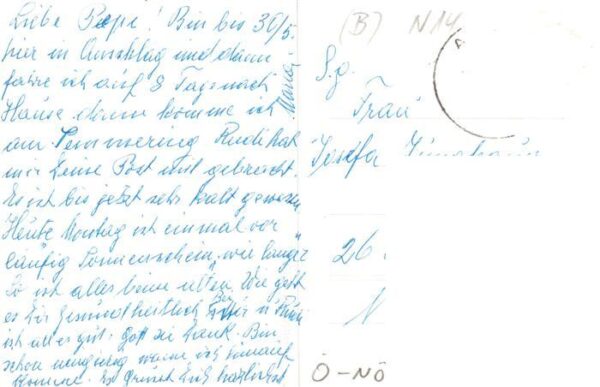 Liebe Pepi! Bin bis 30/5.
hier in Anschlag und dann
fahre ich auf 8 Tag nach
Hause dann komme ich
am Semmering Rudi hat
mir Deine Post mit gebracht.
Es ist bis jetzt sehr kalt gewesen
Heute Montag ist einmal vor
läufig Sonnenschein, wie lange?
So ist alles beim alten. Wie geht
es Dir Gesundheitlich Bei Mir u Rudi
ist alles gut, Gott sei Dank. Bin
schon neugierig wann ich hinauf
komme. Es grüsst Dich herzlichst
(B) N14
S.g.
Frau
Josefa
26.
Ö-NÖ